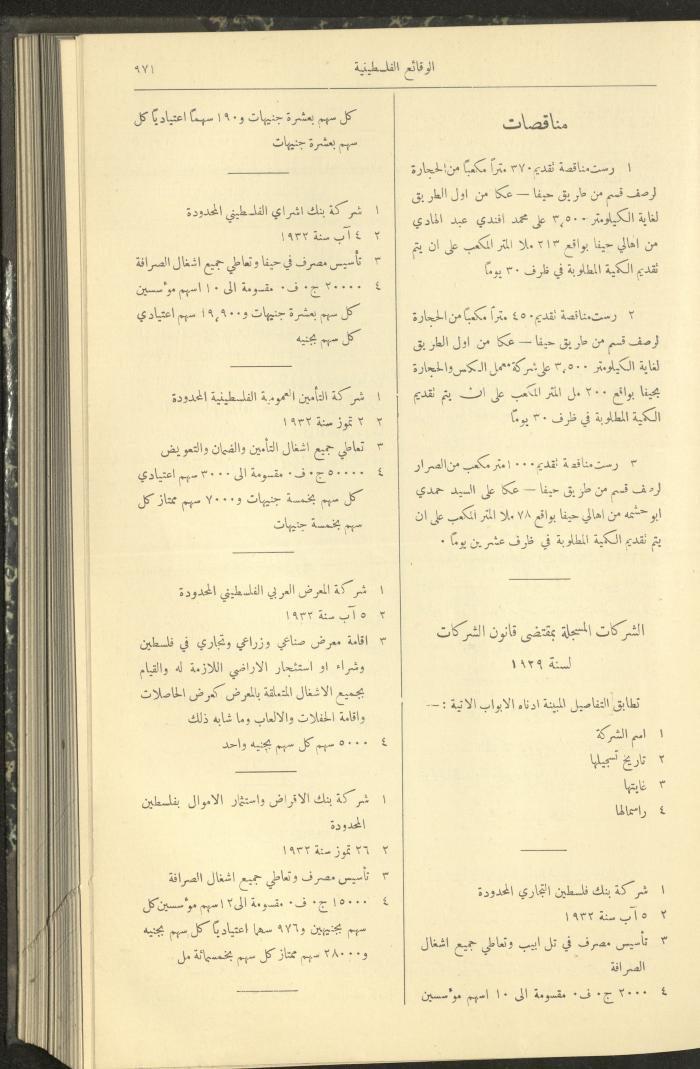 الوقائع الفلسطينية
٩٧١
مناقصات
١ رست مناقصة تقديم ٣٧٠ متراً مكعباً من الحجارة
لرصف قسم من طريق حيفا — عكا من اول الطريق
لغاية الكيلومتر ٣,٥٠٠ على محمد افندي عبد الهادي
من اهالي حيفا بواقع ٢١٣ ملا المتر المكعب على ان يتم
تقديم الكمية المطلوبة في ظرف ٣٠ يوماً
٢ رست مناقصة تقديم ٤٥٠ متراً مكعباً من الحجارة
لرصف قسم من طريق حيفا — عكا من اول الطريق
لغاية الكيلومتر ٣,٥٠٠ على شركة معمل الكلس والحجارة
بحيفا بواقع ٢٠٠ مل المتر المكعب على ان يتم تقديم
الكمية المطلوبة في ظرف ٣٠ يوماً
٣ رست مناقصة تقديم ١٠٠٠ متر مكعب من الصرار
لرصف قسم من طريق حيفا — عكا على السيد حمدي
ابو حشمه من اهالي حيفا بواقع ٧٨ ملا المتر المكعب على ان
يتم تقديم الكمية المطلوبة في ظرف عشرين يوماً ٠
الشركات المسجلة بمقتضى قانون الشركات
لسنة ١٩٢٩
تطابق التفاصيل المبينة ادناه الابواب الاتية : —
١ اسم الشركة
٢ تاريخ تسجيلها
٣ غايتها
٤ راسمالها
١ شركة بنك فلسطين التجاري المحدودة
٢ ٥ آب سنة ١٩٣٢
٣ تأسيس مصرف في تل ابيب وتعاطي جميع اشغال
الصرافة
٤ ٢٠٠٠ ج٠ف٠ مقسومة الى ١٠ اسهم موٴسسين
كل سهم بعشرة جنيهات و١٩٠ سهماً اعتيادياً كل
سهم بعشرة جنيهات
١ شركة بنك اشراي الفلسطيني المحدودة
٢ ٤ آب سنة ١٩٣٢
٣ تأسيس مصرف في حيفا وتعاطي جميع اشغال الصرافة
٤ ٢٠٠٠٠ ج٠ف٠ مقسومة الى ١٠ اسهم موٴسسين
كل سهم بعشرة جنيهات و١٩,٩٠٠ سهم اعتيادي
كل سهم بجنيه
١ شركة التأمين العمومية الفلسطينية المحدودة
٢ ٢ تموز سنة ١٩٣٢
٣ تعاطي جميع اشغال التأمين والضمان والتعويض
٤ ٥٠٠٠٠ ج٠ف٠ مقسومة الى ٣٠٠٠ سهم اعتيادي
كل سهم بخمسة جنيهات و٧٠٠٠ سهم ممتاز كل
سهم بخمسة جنيهات
١ شركة المعرض العربي الفلسطيني المحدودة
٢ ٥ آب سنة ١٩٣٢
٣ اقامة معرض صناعي وزراعي وتجاري في فلسطين
وشراء او استئجار الاراضي اللازمة له والقيام
بجميع الاشغال المتعلقة بالمعرض كعرض الحاصلات
واقامة الحفلات والالعاب وما شابه ذلك
٤ ٥٠٠٠ سهم كل سهم بجنيه واحد
١ شركة بنك الاقراض واستثمار الاموال بفلسطين
المحدودة
٢ ٢٦ تموز سنة ١٩٣٢
٣ تأسيس مصرف وتعاطي جميع اشغال الصرافة
٤ ١٥٠٠٠ ج٠ف٠ مقسومة الى ١٢ اسهم موٴسسين كل
سهم بجنيهين و٩٧٦ سهما اعتيادياً كل سهم بجنيه
و٢٨٠٠٠ سهم ممتاز كل سهم بخمسمائة مل